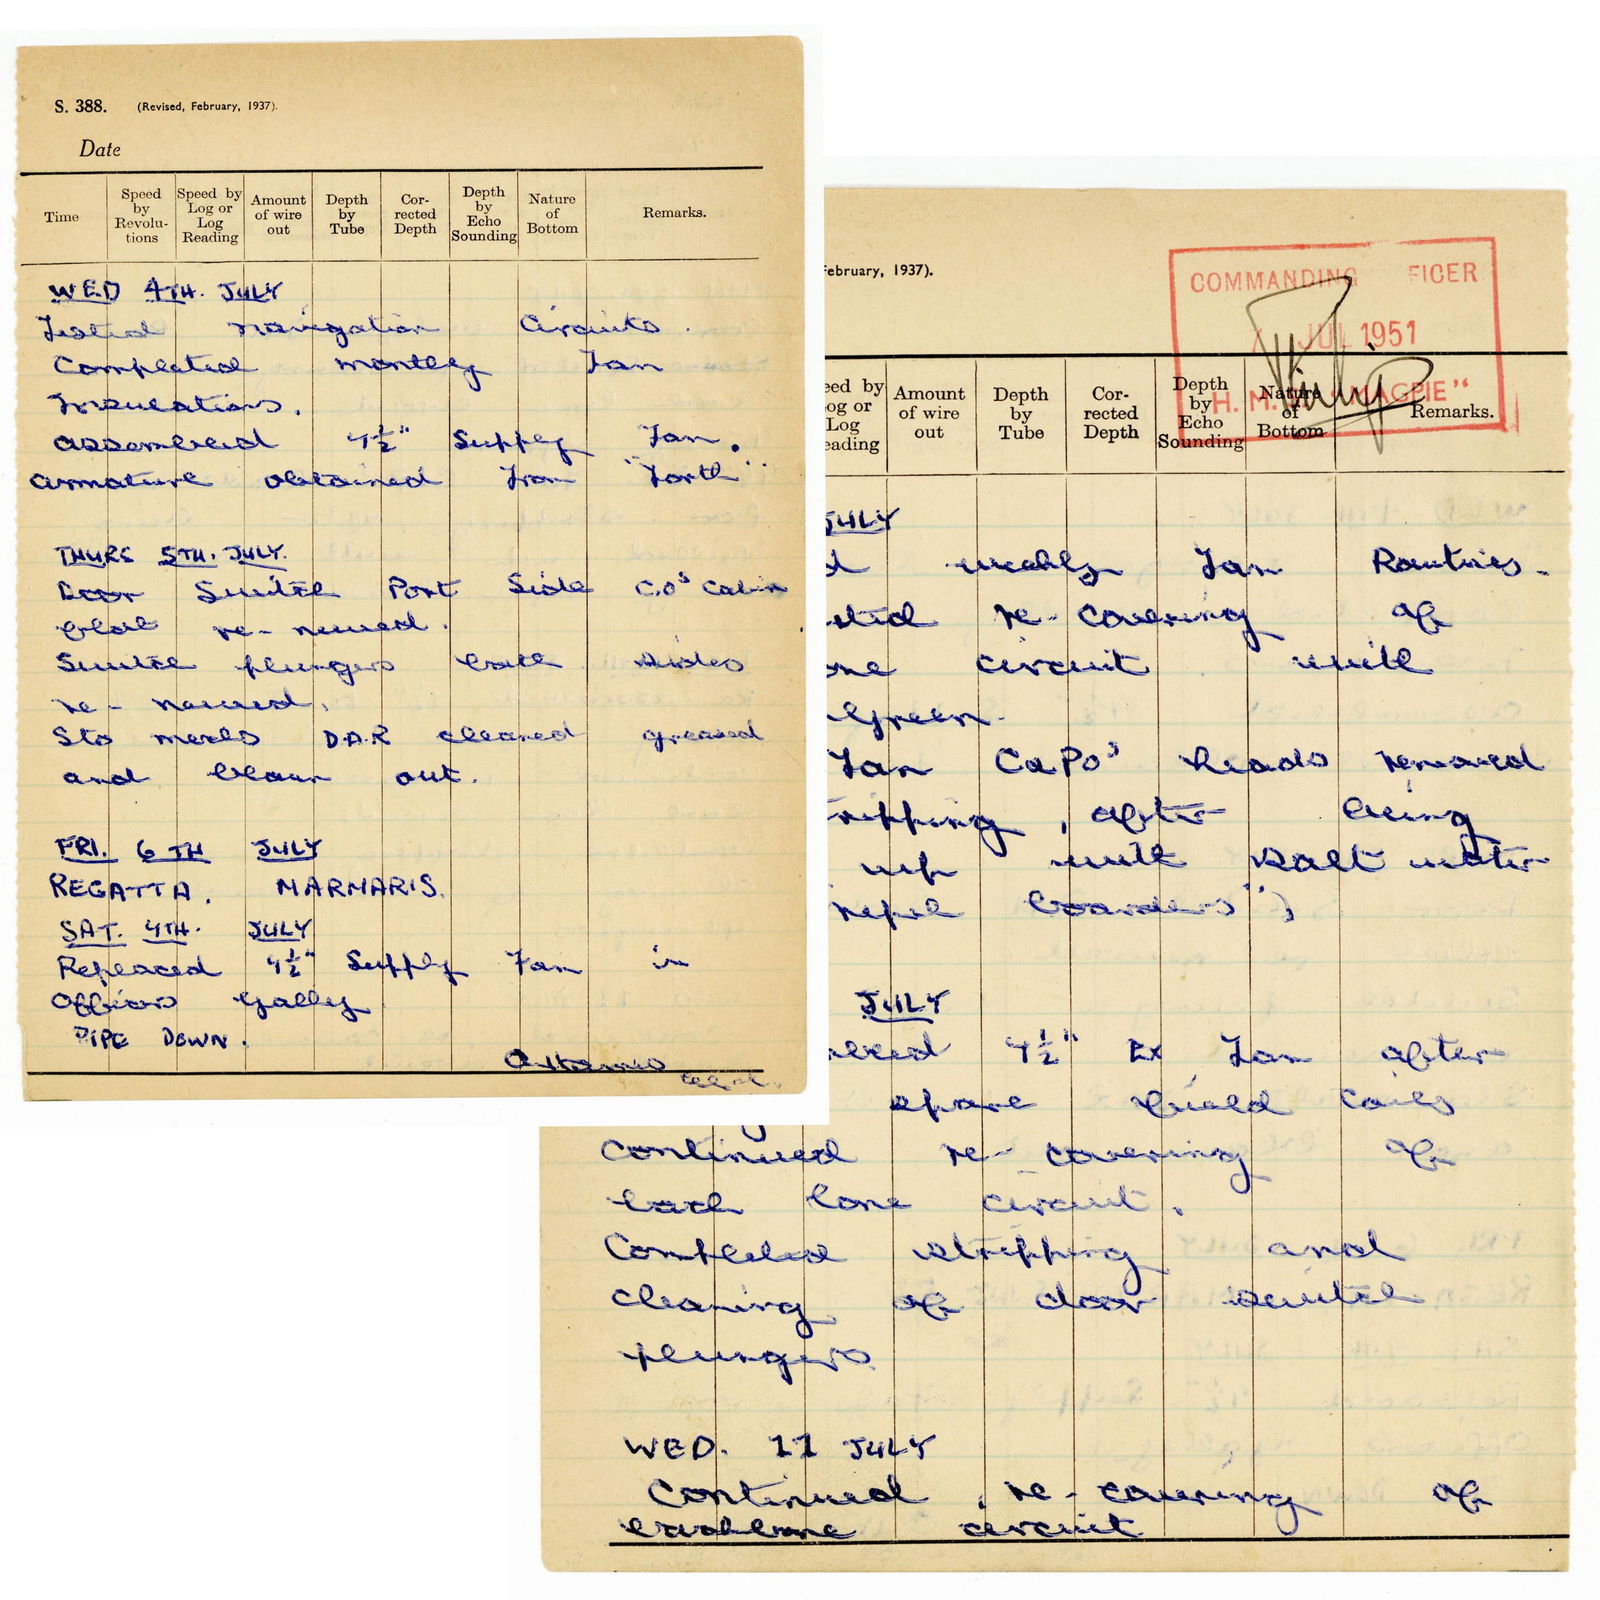 S. 388. (Revised, February, 1937).
Date
Time
Speed by Revolu-tions
Speed by Log or Log Reading
Amount of wire out
Depth by Tube
Cor-rected Depth
Depth by Echo Sounding
Nature of Bottom
Remarks.
WED 4TH. JULY
Tested navigation Circuits.
Completed montly Fan
Insulations.
assembled 4½" Supply Fan.
armature obtained from "Forth"
THURS 5TH. JULY.
Door Switch Port Side C.O's Cabin
flat re-newed.
Switch plungers both sides
re-newed.
Sto mechs D.A.R cleaned greased
and blown out.
FRI. 6TH JULY
REGATTA. MARMARIS.
SAT. 4TH. JULY
Replaced 4½" Supply Fan in
Officers Gally
PIPE DOWN.
February, 1937).
COMMANDING FICER
JUL 1951
H. M. "MAGPIE"
Philip
eed by og or Log eading
Amount of wire out
Depth by Tube
Cor-rected Depth
Depth by Echo Sounding
Nature of Bottom
Remarks.
JULY
d weekly Fan Routines.
ted re-covering of
one circuit with
green.
Fan CaPo's heads removed
ripping, after being
up with salt water
repel boarders")
JULY
4½" Ex Fan after
spare field coils
Continued re-covering of
back bone circuit.
Completed stripping and
cleaning of door switch
plungers.
WED. 11 JULY
Continued re-covering of
backbone circuit